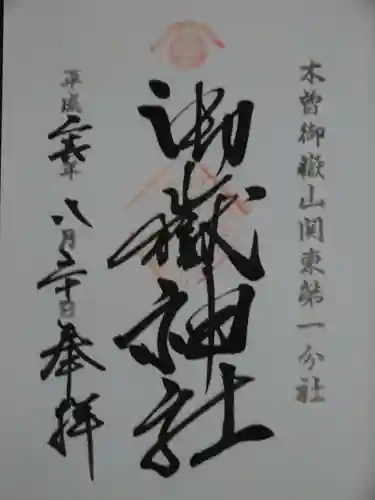 木曽御嶽山関東第一分社
御嶽神社
平成二十六年八月二十日奉拝